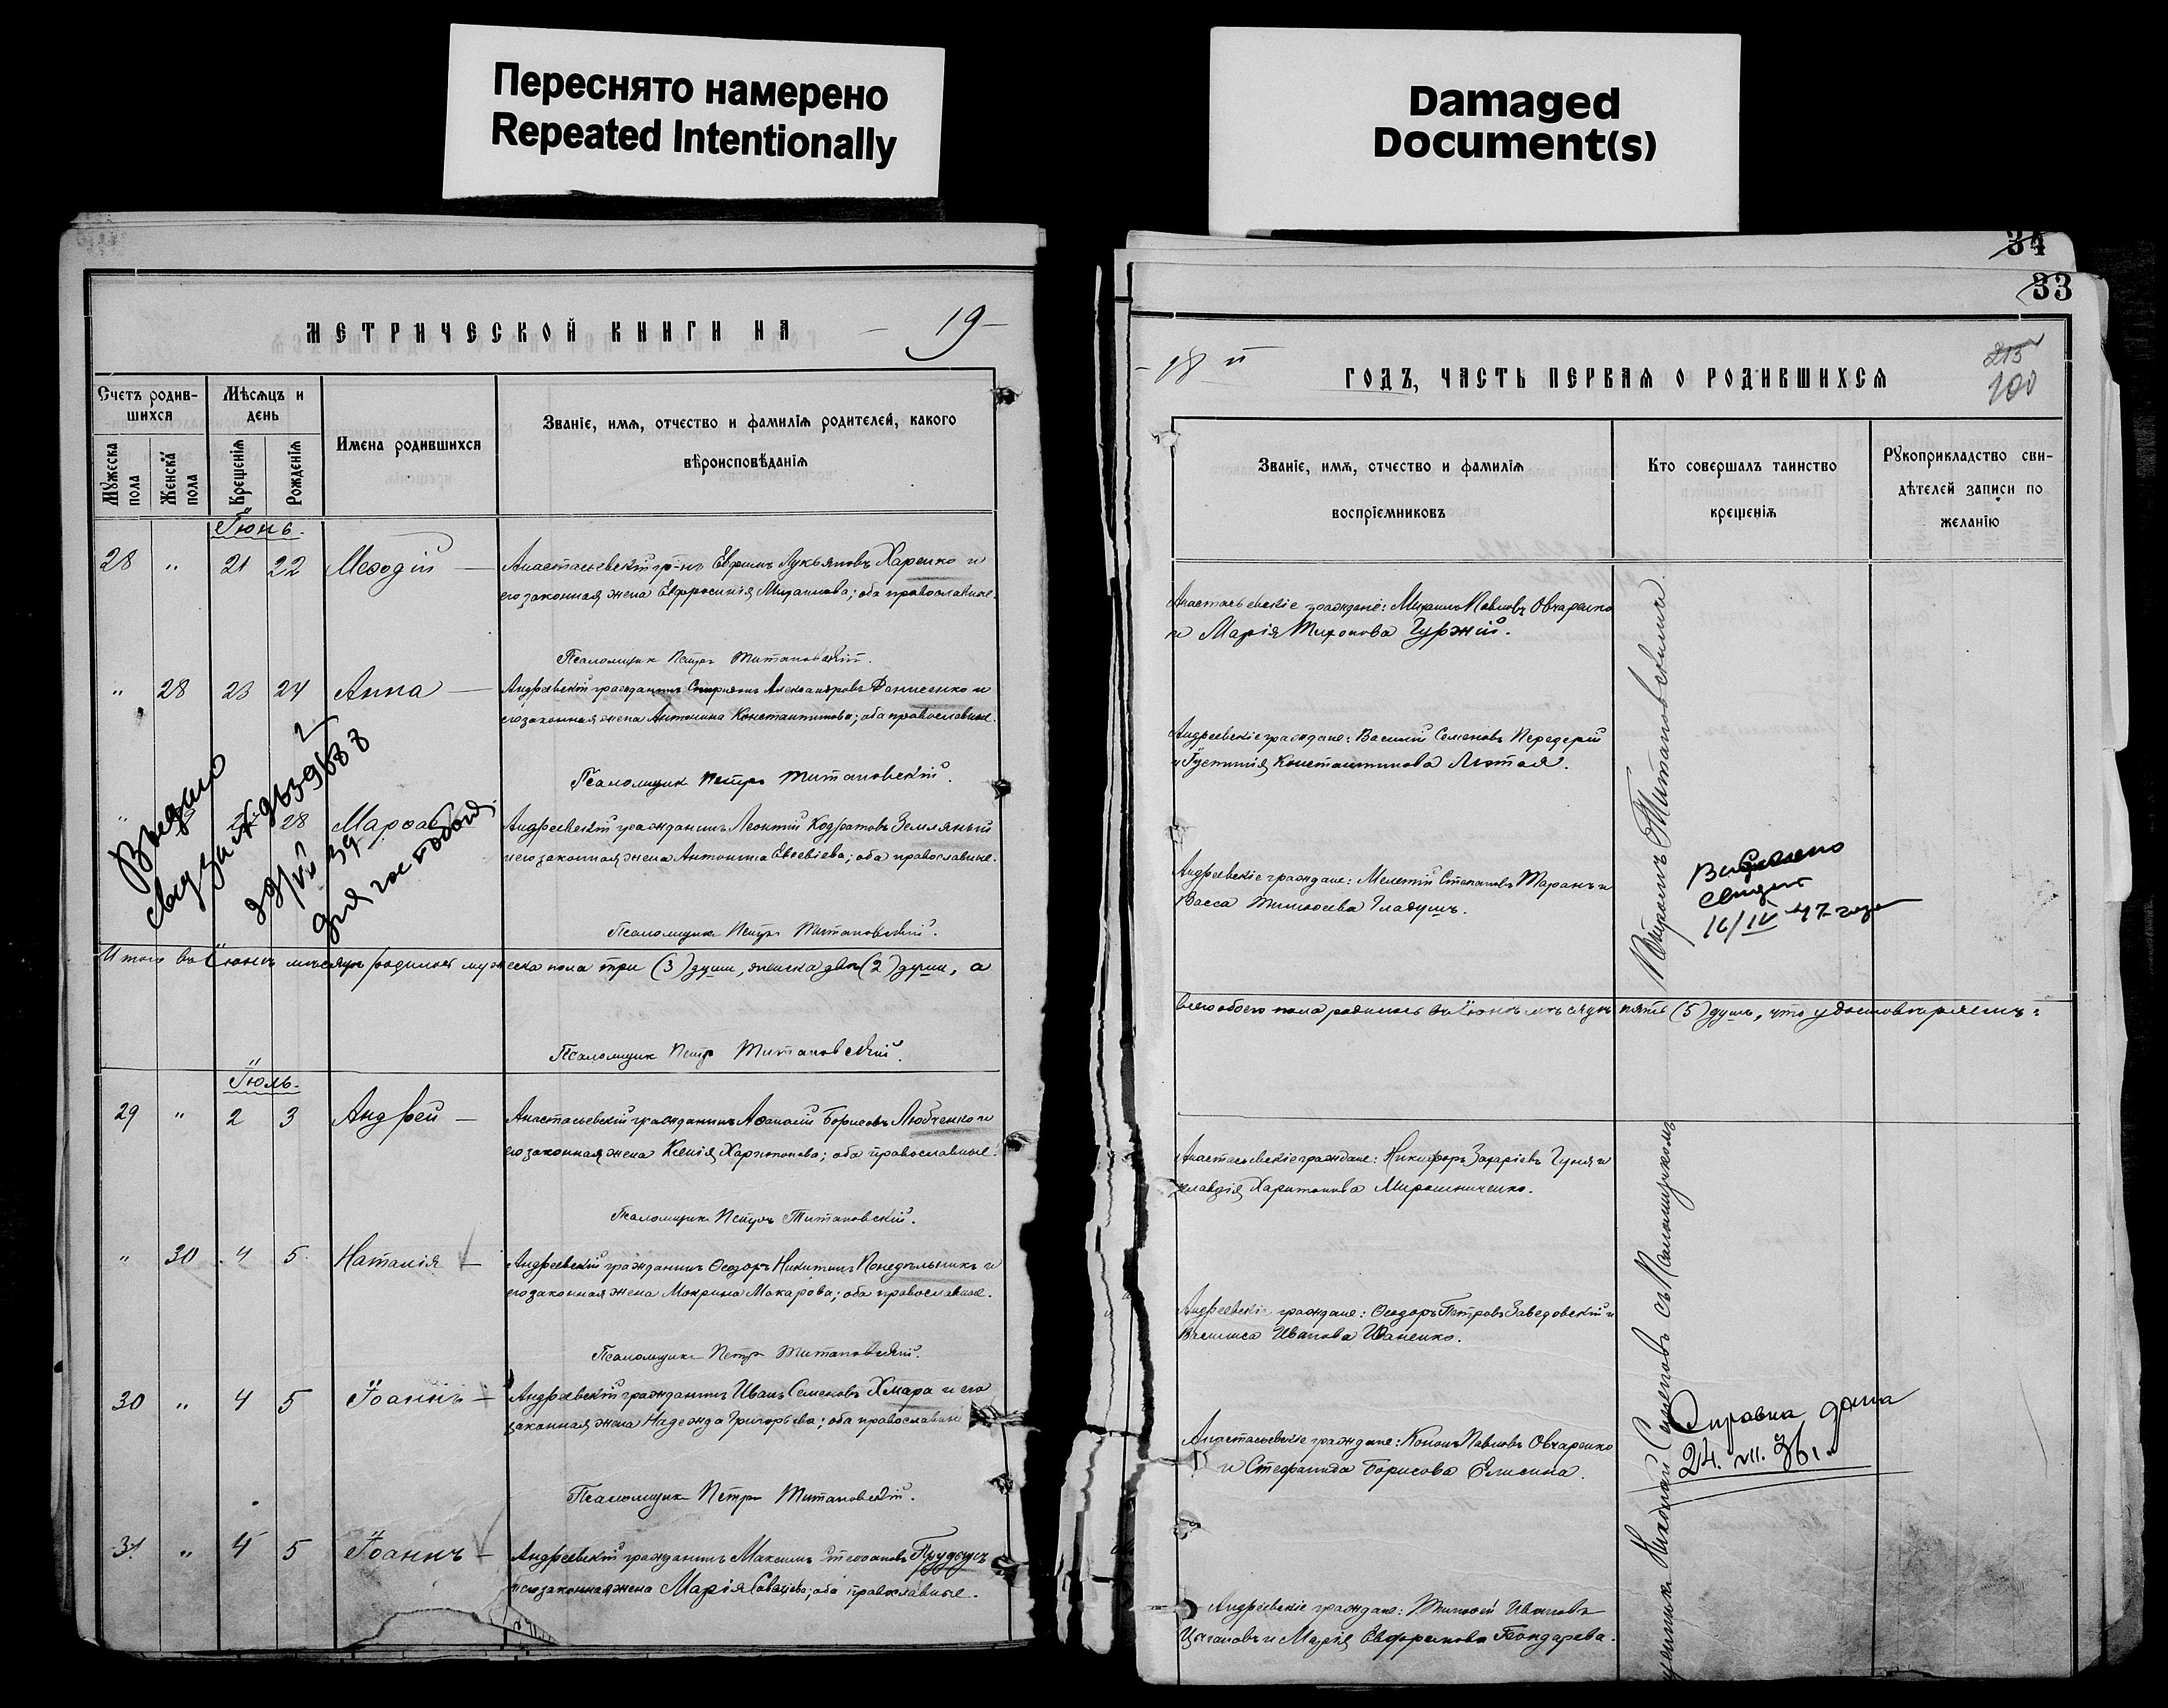 Переснято намерено
Repeated Intentionally
Damaged
Document(s)
34
33
МЕТРИЧЕСКОЙ КНИГИ НА — 19 —
Счетъ родив-
шихся
Мѣсяцъ и
день
Имена родившихся
Званіе, имя, отчество и фамилія родителей, какого
вѣроисповѣданія
Мужеска пола
Женска пола
Крещенія
Рожденія
Іюнь.
28 " 21 22 Меѳодій — Анастасьевскій гр-нъ Евфимъ Лукьяновъ Харенко и
его законная жена Евфросинія Михаилова; оба православные.
Псаломщик Петръ Титановскій.
" 28 23 24 Анна — Андреевскій гражданинъ Спиридонъ Александровъ Денисенко и
его законная жена Антонина Константинова; оба православные.
Псаломщик Петръ Титановскій.
Выдано
для
28 Марѳа Андреевскій гражданинъ Леонтій Кодратовъ Земляный
и его законная жена Антонина Евсевіева; оба православные.
Псаломщик Петръ Титановскій.
Итого въ Іюнѣ мѣсяцѣ родилось мужеска пола три (3) души, женска двѣ (2) души, а
Псаломщик Петр Титановскій.
Іюль.
29 " 2 3 Андрей — Анастасьевскій гражданинъ Аѳанасій Борисовъ Любченко и
его законная жена Ксенія Харитонова; оба православные.
Псаломщик Петръ Титановскій.
" 30 4 5 Наталія — Андреевскій гражданинъ Ѳеодоръ Никитинъ Понедѣльникъ и
его законная жена Мокрина Макарова; оба православные.
Псаломщик Петръ Титановскій.
30 " 4 5 Іоаннъ — Андреевскій гражданинъ Иванъ Семеновъ Хмара и его
законная жена Надежда Григорьева; оба православные
Псаломщик Петръ Титановскій.
31 " 4 5 Іоаннъ — Андреевскій гражданинъ Максимъ Стефановъ
и его законная жена Марія; оба православные.
— 18 "
ГОДЪ, ЧАСТЬ ПЕРВАЯ О РОДИВШИХСЯ
215
100
Званіе, имя, отчество и фамилія
воспріемниковъ
Кто совершалъ таинство
крещенія
Рукоприкладство сви-
дѣтелей записи по
желанію
Анастасьевскіе граждане: Михаилъ Павловъ Овчаренко
и Марія Миронова Гуржій.
Андреевскіе граждане: Василій Семеновъ Передерій
и Іустинія Константинова Лютая.
Андреевскіе граждане: Мелетій Степановъ Таранъ и
Васса Тимоѳеева Гладушъ.
16/IV 47 года
всего обоего пола родилось въ Іюнѣ мѣсяцѣ пять (5) душъ, что удостовѣряемъ:
Анастасьевскіе граждане: Никифоръ Захаріевъ Гуня и
Клавдія Харитонова Мирошниченко.
Андреевскіе граждане: Ѳеодоръ Петровъ Заведовскій и
Василиса Иванова Иваненко.
Анастасьевскіе граждане: Кононъ Павловъ Овчаренко
и Стефанида Борисова Елисина.
Андреевскіе граждане: Тимоѳей Ивановъ
Цыгановъ и Марія Евфремова Бондарева.
Справка дана
24. VII. 36 г.
Николай Семеновъ съ Псаломщикомъ
Петромъ Титановскимъ